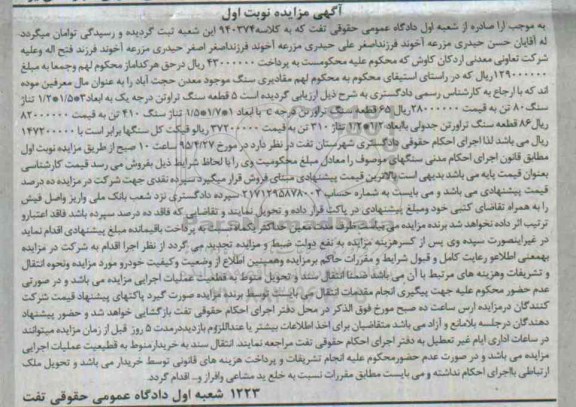 آگهی مزایده نوبت اول
به موجب آرا صادره از شعبه اول دادگاه عمومی حقوقی تفت که به کلاسه ۹۴۰۳۷۴ این شعبه ثبت گردیده و رسیدگی توامان میگردد
له آقایان حسن حیدری مزرعه آخوند فرزنداصغر علی حیدری مزرعه آخوند فرزنداصغر اصغر حیدری مزرعه آخوند فرزند فتح اله وعلیه
شرکت تعاونی معدنی اردکان کاوش که محکوم علیه محکومست به پرداخت ۴۳۰۰۰۰۰۰ ریال درحق هرکدام از محکوم لهم وجمعا به مبلغ
۱۲۹۰۰۰۰۰۰ ریال که در راستای استیفای محکوم به محکوم لهم مقادیری سنگ موجود معدن حجت آباد را به عنوان مال معرفین موده
اند که با ارجاع به کارشناس رسمی دادگستری به شرح ذیل ارزیابی گردیده است ۵ قطعه سنگ تراوتن درجه یک به ابعاد
سنگ ۸۰ تن به قیمت ۲۸۰۰۰۰۰۰ ریال ۶۵ قطعه سنگ تراورتن درجه ۲ با ابعاد ۱/۷*۱/۵ تناژ سنگ ۴۱۰ تن به قیمت ۸۲۰۰۰۰۰۰
ریال ۸۶ قطعه سنگ تراورتن جدولی باابعاد تناژ ۳۱۰ تن به قیمت ۳۷۲۰۰۰۰۰ ریالو قیکت کل سنگها برابر است با ۱۴۷۲۰۰۰۰۰
ریال می باشد لذا اجرای احکام حقوقی دادگستری شهرستان تفت در نظر دارد در مورخ ۹۵/۴/۲۷ ساعت ۱۰ صبح از طریق مزایده نوبت اول
مطابق قانون اجرای احکام مدنی سنگهای موصوف را معادل مبلغ محکومیت وی را با لحاظ شرایط ذیل بفروش می رسد قیمت کارشناسی
بعنوان قیمت پایه می باشد بدیهی است بالاترین قیمت پیشنهادی مبنای فروش قرار میگیرد سپرده نقدی جهت شرکت در مزایده ده درصد
قیمت پیشنهادی می باشد و می بایست به شماره حساب ۲۱۷۱۲۹۵۸۷۸۰۰۳ سپرده دادگستری نزد شعب بانک ملی واریز واصل فیش
را به همراه تقاضای کتبی خود ومبلغ پیشنهادی در پاکت قرار داده و تحویل نمایند و تقاضایی که فاقد ده درصد سپرده باشد فاقد اعتبارو
ترتیب اثر داده نخواهد شد برنده مزایده می بایست ظرف مدت معین حداکثر یکماه نسبت به پرداخت باقیمانده مبلغ پیشنهادی اقدام نماید
در غیراینصورت سپده وی پس از کسرهزینه مزایده به نفع دولت ضبط و مزایده تجدید می گردد از نظر اجرا اقدام به شرکت در مزایده
بهمعنی اطلاعو رعایت کامل و قبول شرایط و مقررات حاکم برمزایده وهمچنین اطلاع از وضعیت وکیفیت خودرو مورد مزایده ونحوه انتقال
و تشریفات وهزینه های مرتبط با آن می باشد ضمنا انتقال سند و تحویل منوط به قطعیت عملیات اجرایی مزایده می باشد و در صورتی
عدم حضور محکوم علیه جهت پیگیری انجام مقدمات انتقال می بایست توسط برنده مزایده صورت گیرد پاکتهای پیشنهاد قیمت شرکت
کنندگان درمزایده ارس ساعت ده صبح مورخ فوق الذکر در محل دفتر اجرای احکام حقوقی تفت بازگشایی خواهد شد و حضور پیشنهاد
دهندگان درجلسه بلامانع و آزاد می باشد متقاضیان برای اخذ اطلاعات بیشتر یا عنداللزوم بازدیددرمدت ۵ روز قبل از زمان مزایده میتوانند
در ساعات اداری ایام غیر تعطیل به دفتر اجرای احکام حقوقی تفت مراجعه نمایند. انتقال سند به خریدارمنوط به قطعیعت عملیات اجرایی
مزایده می باشد و در صورت عدم حضورمحکوم علیه انجام تشریفات و پرداخت هزینه های قانونی توسط خریدار می باشد و تحویل ملک
ارتباطی بااجرای احکام نداشته و می بایست مطابق مقررات نسبت به خلع ید مشاعی وافراز و.. اقدام گردد.
۱۲۲۳ شعبه اول دادگاه عمومی حقوقی تفت